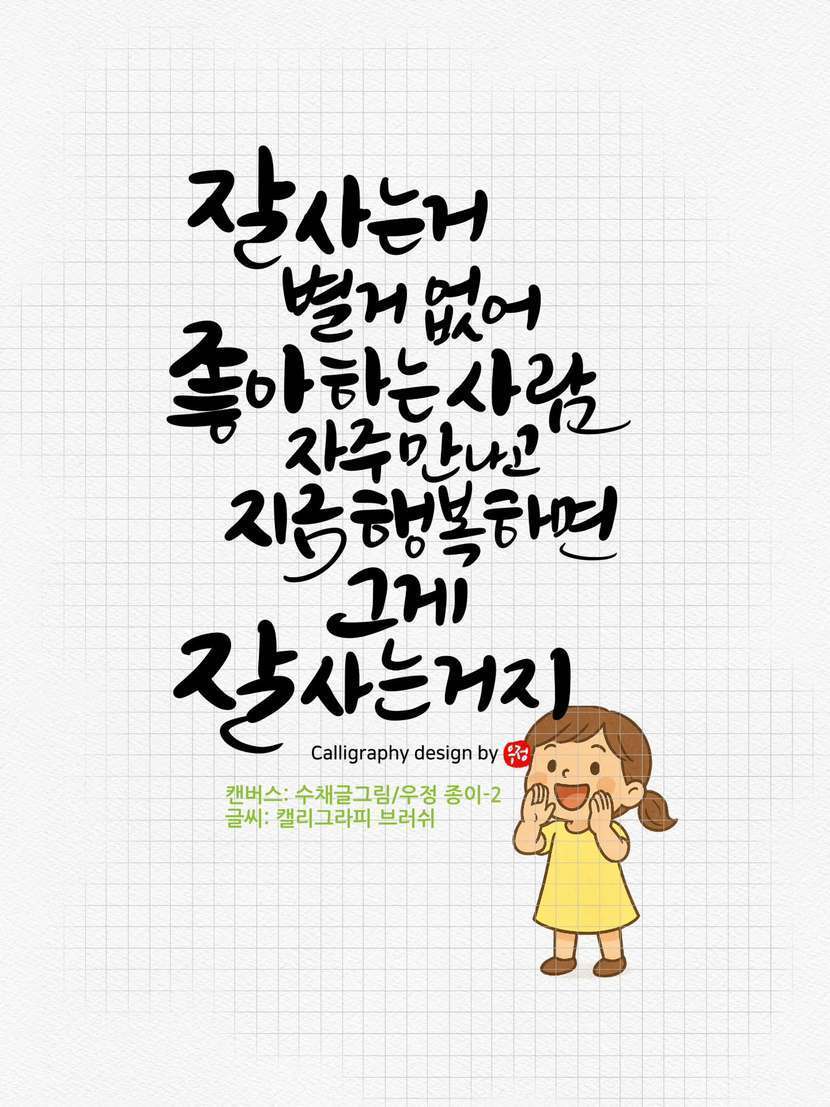 잘사는거
별거 없어
좋아하는사람
자주만나고
지금행복하면
그게
잘사는거지
Calligraphy design by 우정
캔버스: 수채글그림/우정 종이-2
글씨: 캘리그라피 브러쉬